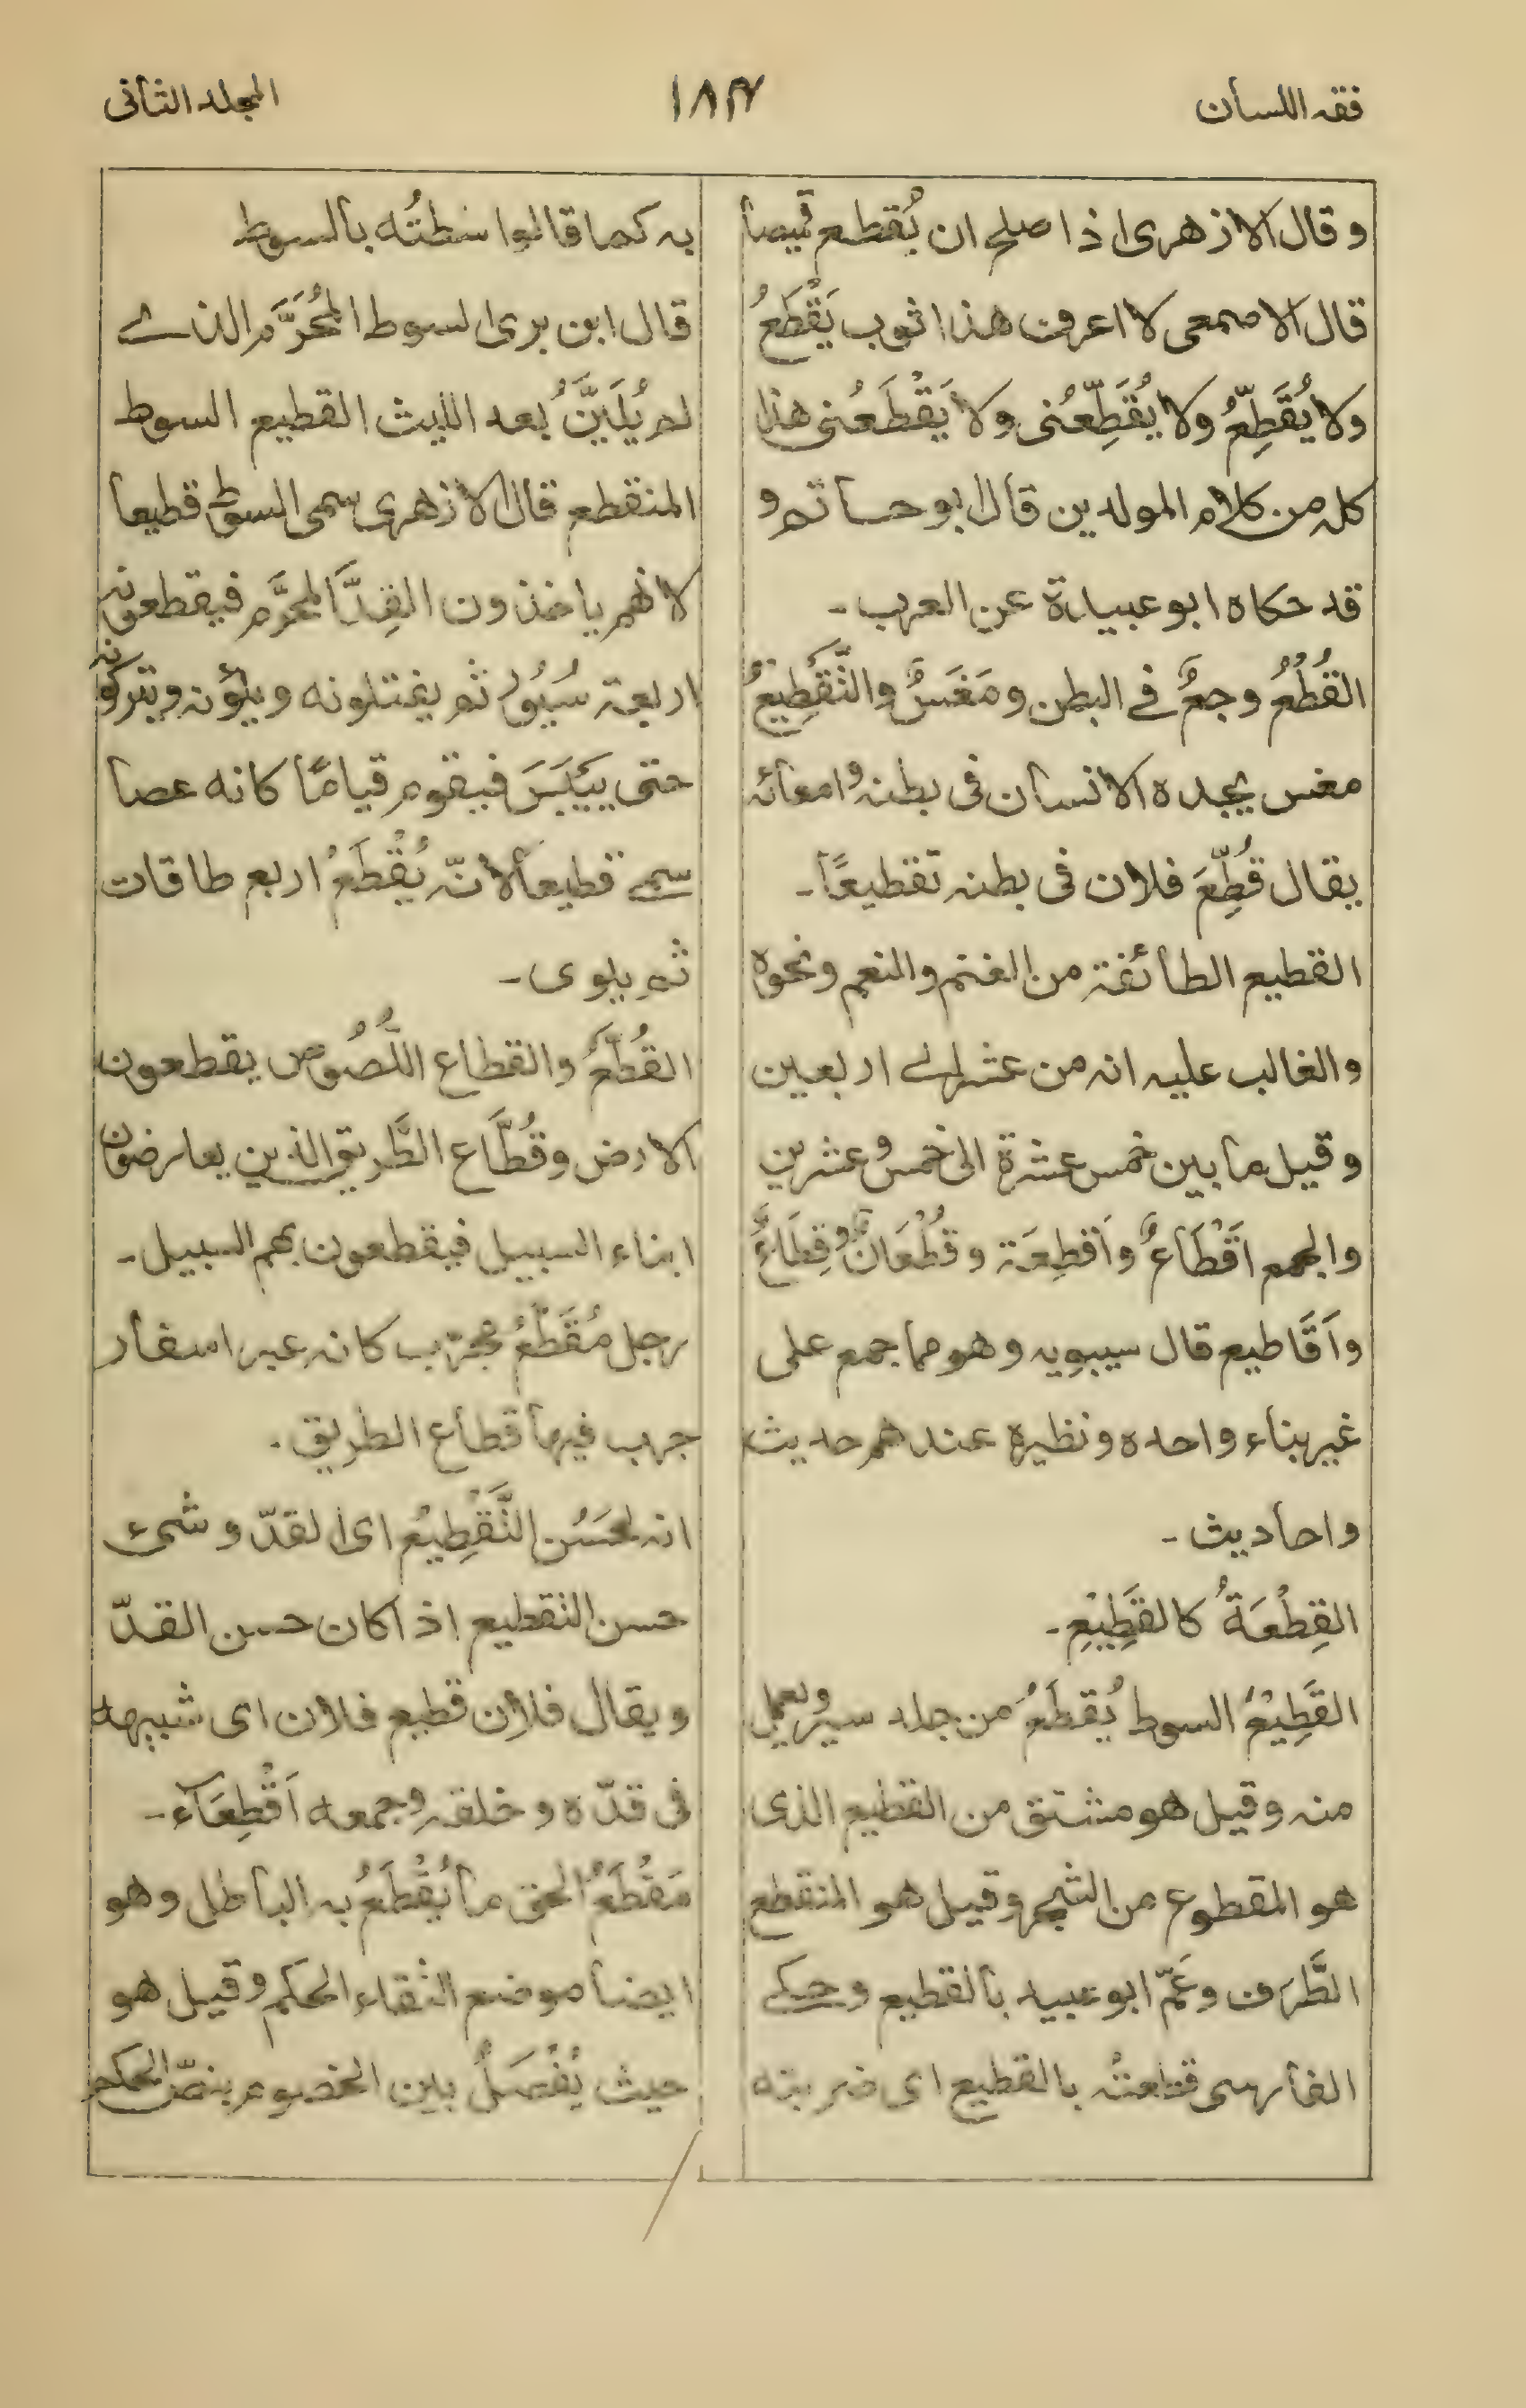 فقه اللسان
١٨٣
المجلد الثانى
و قال الازهرى اذا صلح ان يُقطع قميصا
قال الاصمعى لا اعرف هذا ثوب يَقْطَعُ
ولا يُقَطِّعُ ولا يُقَطِّعُنى ولا يَقْطَعُنى هذا
كله من كلام المولدين قال ابو حاتم و
قد حكاه ابو عبيدة عن العرب ـ
القُطْعُ وجعٌ فے البطن ومَغَسٌ والتَّقْطِيعُ
مغس يجده الانسان فى بطنه وامعائه
يقال قُطِّعَ فلان فى بطنه تقطيعًا ـ
القطيع الطائفة من الغنم والنعم ونحوه
والغالب عليه انه من عشر الے اربعين
وقيل ما بين خمس عشرة الى خمس وعشرين
والجمع اَقْطَاعٌ واَقطِعَة وقُطْعَانٌ وقِطَاعٌ
واَقَاطيع قال سيبويه وهو مما جمع على
غير بناء واحده ونظيره عندهم حديث
واحاديث ـ
القِطْعَةُ كالقَطِيْعِ ـ
القَطِيْعُ السوط يُقطَعُ من جلد سير ويعمل
منه وقيل هو مشتق من القطيع الذى
هو المقطوع من الشجر وقيل هو المنقطع
الطَّرَف وعَمّ ابو عبيد بالقطيع وحكے
الفارسى قطعتُه بالقطيع اى ضربته
به كما قالوا سُطتُه بالسوط
قال ابن برى السوط المُحَرَّم الذے
لم يُلَيَّنْ بُعد الليث القطيع السوط
المنقطع قال الازهرى سمى السوط قطيعا
لانهم ياخذون القِدَّ المحرَّم فيقطعونه
اربعة سُيُوْر ثم يفتلونه ويلؤنه ويتركونه
حتى يَيْبَسَ فيقوم قيامًا كانه عصا
سمے قطيعا لانّه يُقْطَعُ اربع طاقات
ثم يلوى ـ
القُطَّعُ والقطاع اللُّصُوْص يقطعون
الارض وقُطَّاع الطَّريق الذين يعارضون
ابناء السبيل فيقطعون بهم السبيل ـ
رجل مُقَطَّعُ مجرّب كانه عبر اسفار
جرب فيها قطاع الطريق ـ
انه لحَسَنُ التَّقْطِيْعِ اى القدّ و شئ
حسن التقطيع اذا كان حسن القدّ
ويقال فلان قطيع فلان اى شبيهه
فى قدّه وخلقه وجمعه اَقْطِعَآء ـ
مَقْطَعُ الحق ما يُقْطَعُ به الباطل وهو
ايضا موضع التقاء الحكم وقيل هو
حيث يُفْصَلُ بين الخصوم بنصّ الحكم